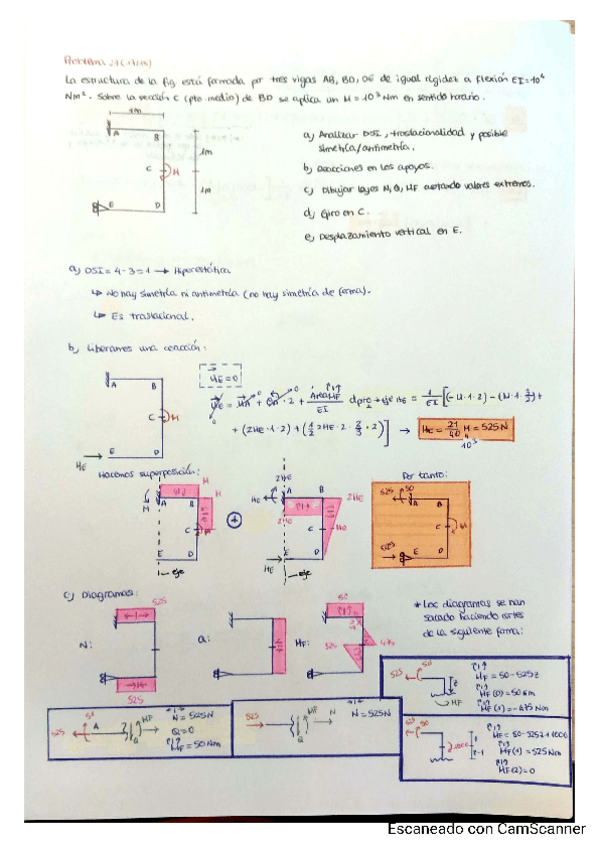 Problema
La estructura de la fig está formada por tres vigas AB, BD, DE de igual rigidez a flexión EI=10⁴
Nm². Sobre la sección C (pto medio) de BD se aplica un M=10³Nm en sentido horario.
1m
A B
1m
C M
1m
E D
a) Analizar DSI, traslacionalidad y posible
simetría/antimetría.
b) Reacciones en los apoyos.
c) Dibujar leyes N, Q, MF acotando valores extremos.
d) Giro en C.
e) Desplazamiento vertical en E.
a) DSI = 4-3 = 1 → Hiperestática
↳ No hay simetría ni antimetría (no hay simetría de forma).
↳ Es traslacional.
b) Liberamos una reacción:
A B
C M
E D
HE
HE = 21/40 M = 525N
Hacemos superposición:
Por tanto:
M
A B
C
E D
eje
2HE
HE
A B
C
E D
eje
525 50
A B
C M
E D
525
c) Diagramas:
525
N:
525
Q:
50
MF:
525
475
* Los diagramas se han
sacado haciendo cortes
de la siguiente forma:
525 50
MF = 50-525z
MF(0) = 50Nm
MF(1) = -475Nm
525 50 A
MF
N
Q
N = 525N
Q = 0
MF = 50Nm
525
MF
N
Q
N = 525N
525 50
1000
MF = 50-525z+1000
MF(1) = 525Nm
MF(2) = 0
Escaneado con CamScanner